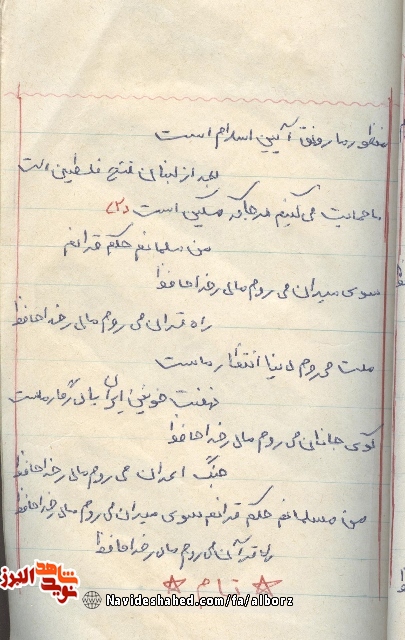 منظور ما رونق آیین اسلام است
بعد از لبنان فتح فلسطین است
ما حمایت می کنیم هر جا که مسکین است (۲)
من مسلمانم حکم قرآنم
سوی میدان می روم مادر خداحافظ
راه قرآن می روم مادر خداحافظ
ملت می روم دنیا انتظار ماست
نهضت خونین ایران یادگار ماست
کوی جانان می روم مادر خداحافظ
جنگ می روم مادر خداحافظ
من مسلمانم حکم قرآنم سوی میدان می روم مادر خداحافظ
راه قرآن می روم مادر خداحافظ
تمام
شاهد
نوید
البرز
Navideshahed.com/fa/alborz